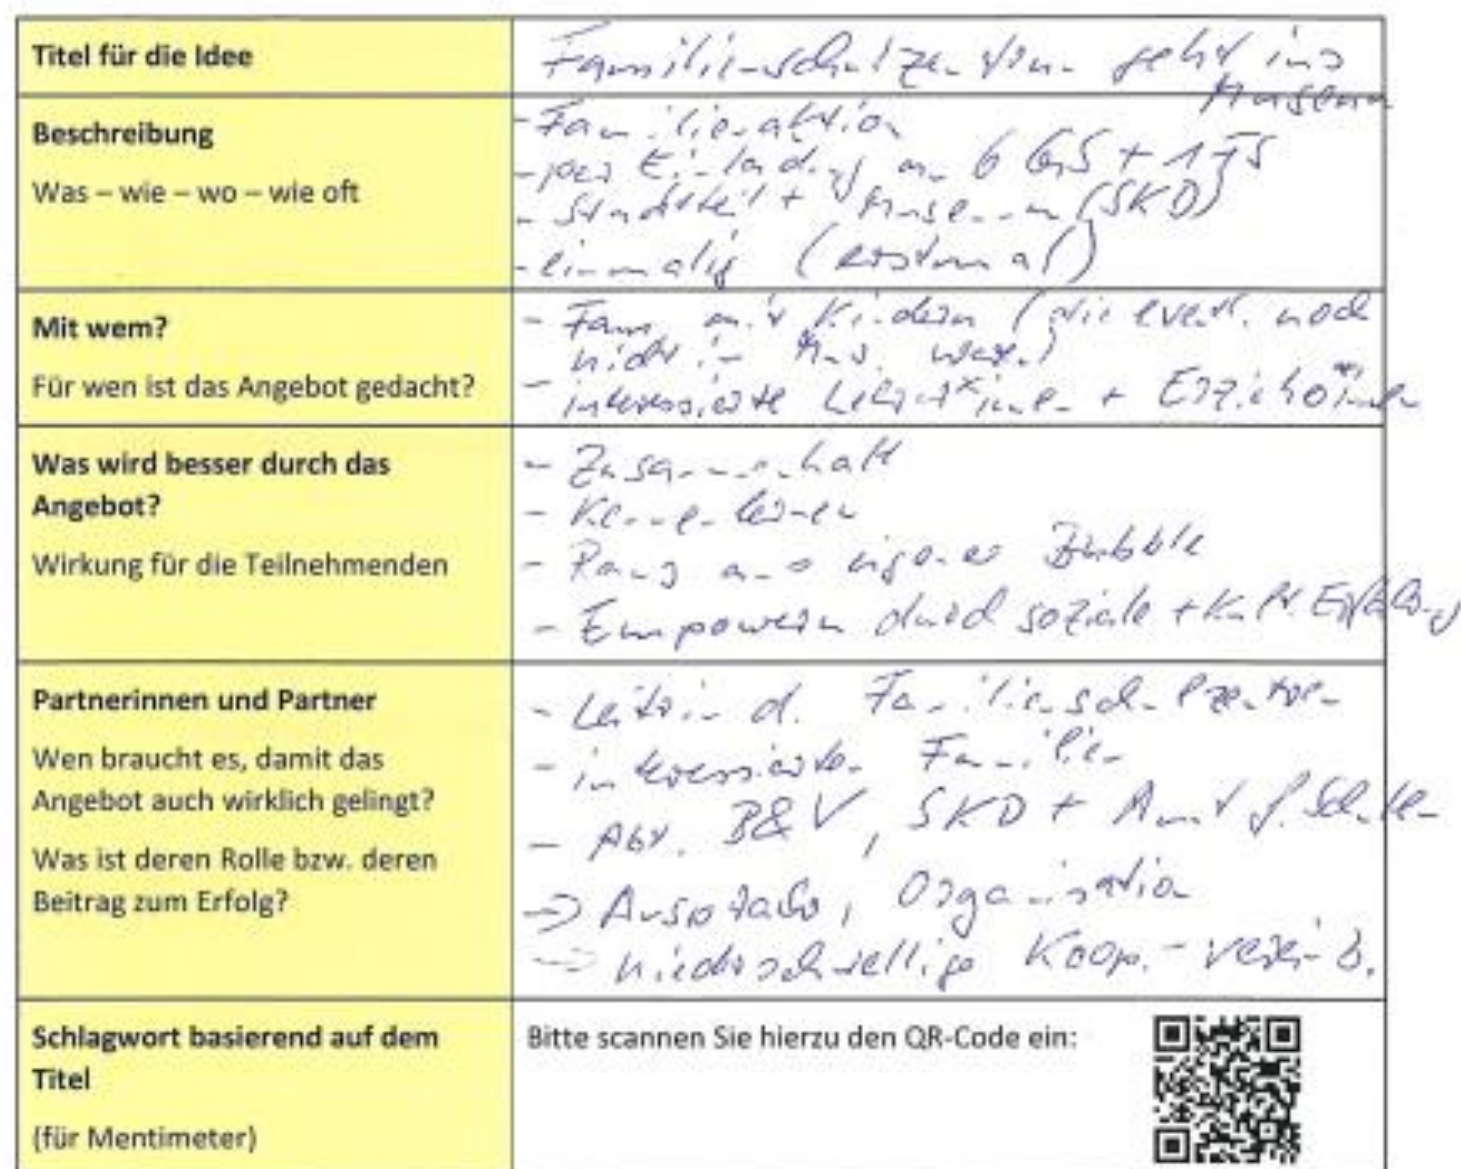 Titel für die Idee
Familienschulzentrum geht ins
Museum
Beschreibung
Was – wie – wo – wie oft
- Familienaktion
- per Einladung an 6 GS + 1 FS
- Stadtteil + Museum (SKD)
- einmalig (erstmal)
Mit wem?
Für wen ist das Angebot gedacht?
- Fam. mit Kindern (die evert. noch
nicht in Mus. waren)
- interessierte Lehrer*innen + Erzieher*innen
Was wird besser durch das
Angebot?
Wirkung für die Teilnehmenden
- Zusammenhalt
- Kennenlernen
- Raus aus eigener Bubble
- Empowern durch soziale + kult. Erfahrung
Partnerinnen und Partner
Wen braucht es, damit das
Angebot auch wirklich gelingt?
Was ist deren Rolle bzw. deren
Beitrag zum Erfolg?
- Leiterin d. Familienschulzentren
- interessierten Familien
- Abt. B&V, SKD + Amt f. Schulen
-> Absprache, Organisation
-> niederschwellige Koop.-vereinb.
Schlagwort basierend auf dem
Titel
(für Mentimeter)
Bitte scannen Sie hierzu den QR-Code ein: